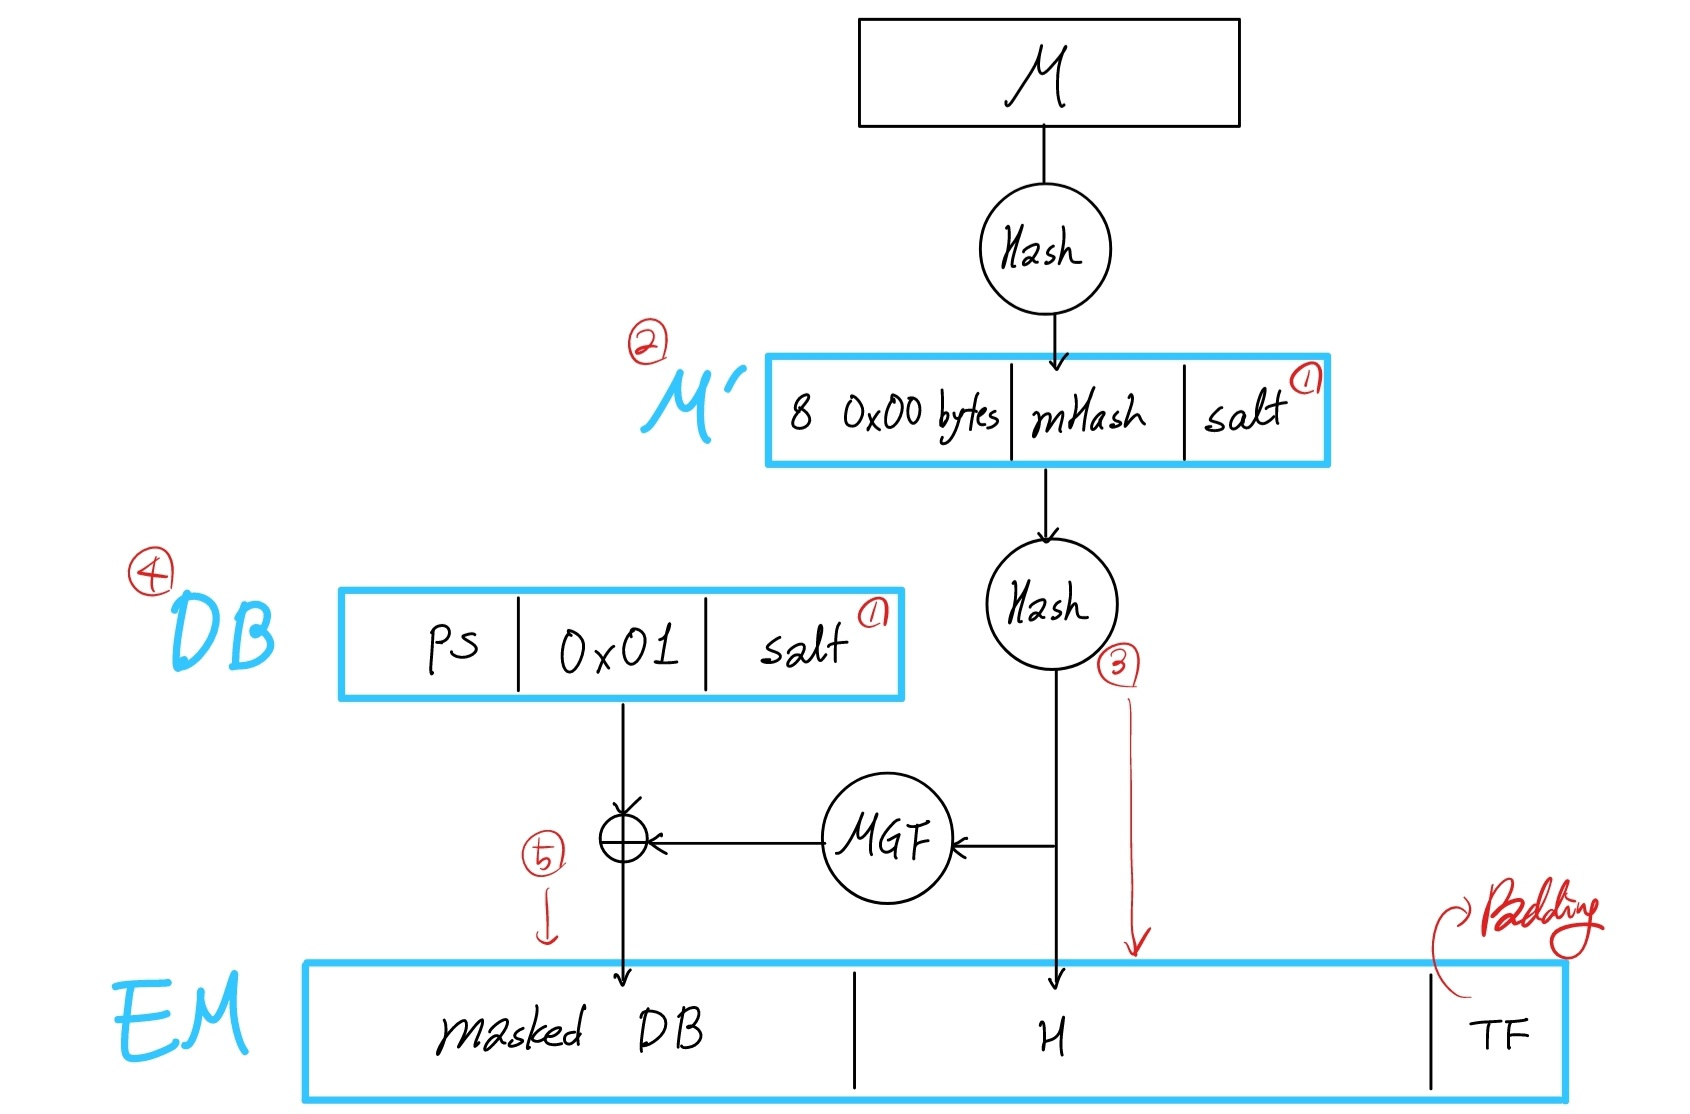 M
Hash
②
M′
8 0x00 bytes mHash salt ①
Hash
③
④
DB
PS 0x01 salt ①
MGF
⑤
Padding
EM
masked DB H TF